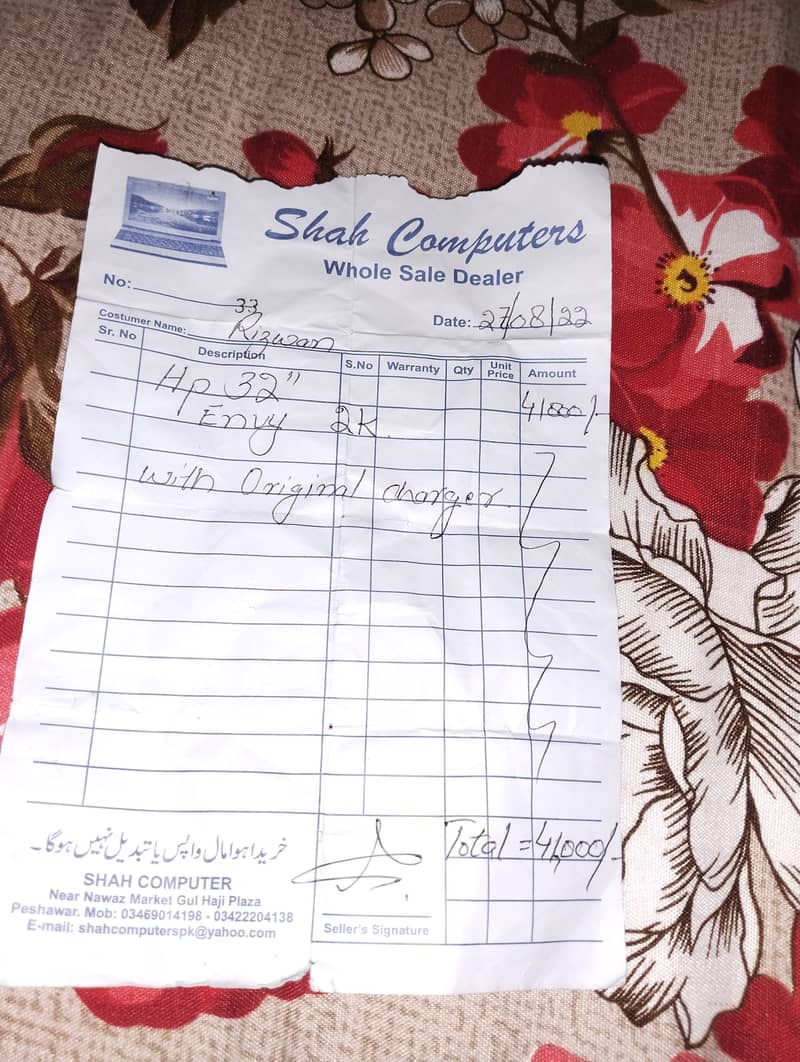 Shah Computers
Whole Sale Dealer
No: 33
Date: 27/08/22
Costumer Name: Rizwan
Sr. No Description S.No Warranty Qty Unit Price Amount
Hp 32" 41000/-
Envy 2K.
with Original charger.
Total = 41,000/-
خریدا ہوا مال واپس یا تبدیل نہیں ہوگا۔
SHAH COMPUTER
Near Nawaz Market Gul Haji Plaza
Peshawar. Mob: 03469014198 - 03422204138
E-mail: shahcomputerspk@yahoo.com
Seller's Signature